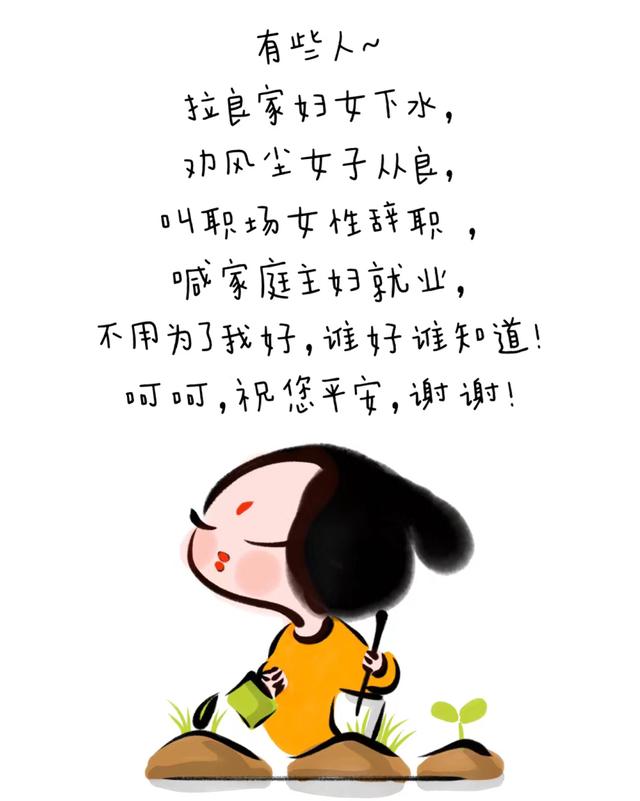 有些人~
拉良家妇女下水,
劝风尘女子从良,
叫职场女性辞职,
喊家庭主妇就业,
不用为了我好,谁好谁知道!
呵呵,祝您平安,谢谢!